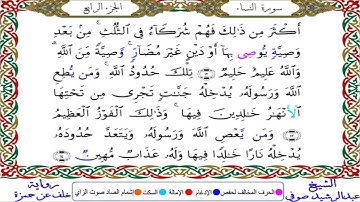 سورة النساء الجزء الرابع
أَكْثَرَ مِن ذَٰلِكَ فَهُمْ شُرَكَاءُ فِي الثُّلُثِ ۚ مِن بَعْدِ
وَصِيَّةٍ يُوصِي بِهَا أَوْ دَيْنٍ غَيْرَ مُضَارٍّ ۚ وَصِيَّةً مِّنَ اللَّهِ ۗ
وَاللَّهُ عَلِيمٌ حَلِيمٌ ۝ تِلْكَ حُدُودُ اللَّهِ ۚ وَمَن يُطِعِ
اللَّهَ وَرَسُولَهُ يُدْخِلْهُ جَنَّاتٍ تَجْرِي مِن تَحْتِهَا
الْأَنْهَارُ خَالِدِينَ فِيهَا ۚ وَذَٰلِكَ الْفَوْزُ الْعَظِيمُ
۝ وَمَن يَعْصِ اللَّهَ وَرَسُولَهُ وَيَتَعَدَّ حُدُودَهُ
يُدْخِلْهُ نَارًا خَالِدًا فِيهَا وَلَهُ عَذَابٌ مُّهِينٌ ۝
الشيخ عبدالرشيد صوفي
الحرف المخالف لحفص الإدغام الإمالة السكت إشمام الصاد صوت الزاي
رواية خلف عن حمزة